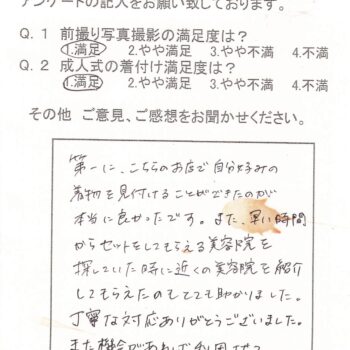 アンケートの記入をお願い致しております。
Q.1 前撮り写真撮影の満足度は?
1.満足 2.やや満足 3.やや不満 4.不満
Q.2 成人式の着付け満足度は?
1.満足 2.やや満足 3.やや不満 4.不満
その他 ご意見、ご感想をお聞かせください。
第一に、こちらのお店で自分好みの
着物を見付けることができたのが
本当に良かったです。また、早い時間
からセットをしてもらえる美容院を
探していた時に近くの美容院を紹介
してもらえたのもとても助かりました。
丁寧な対応ありがとうございました。
また機会があればご利用させて